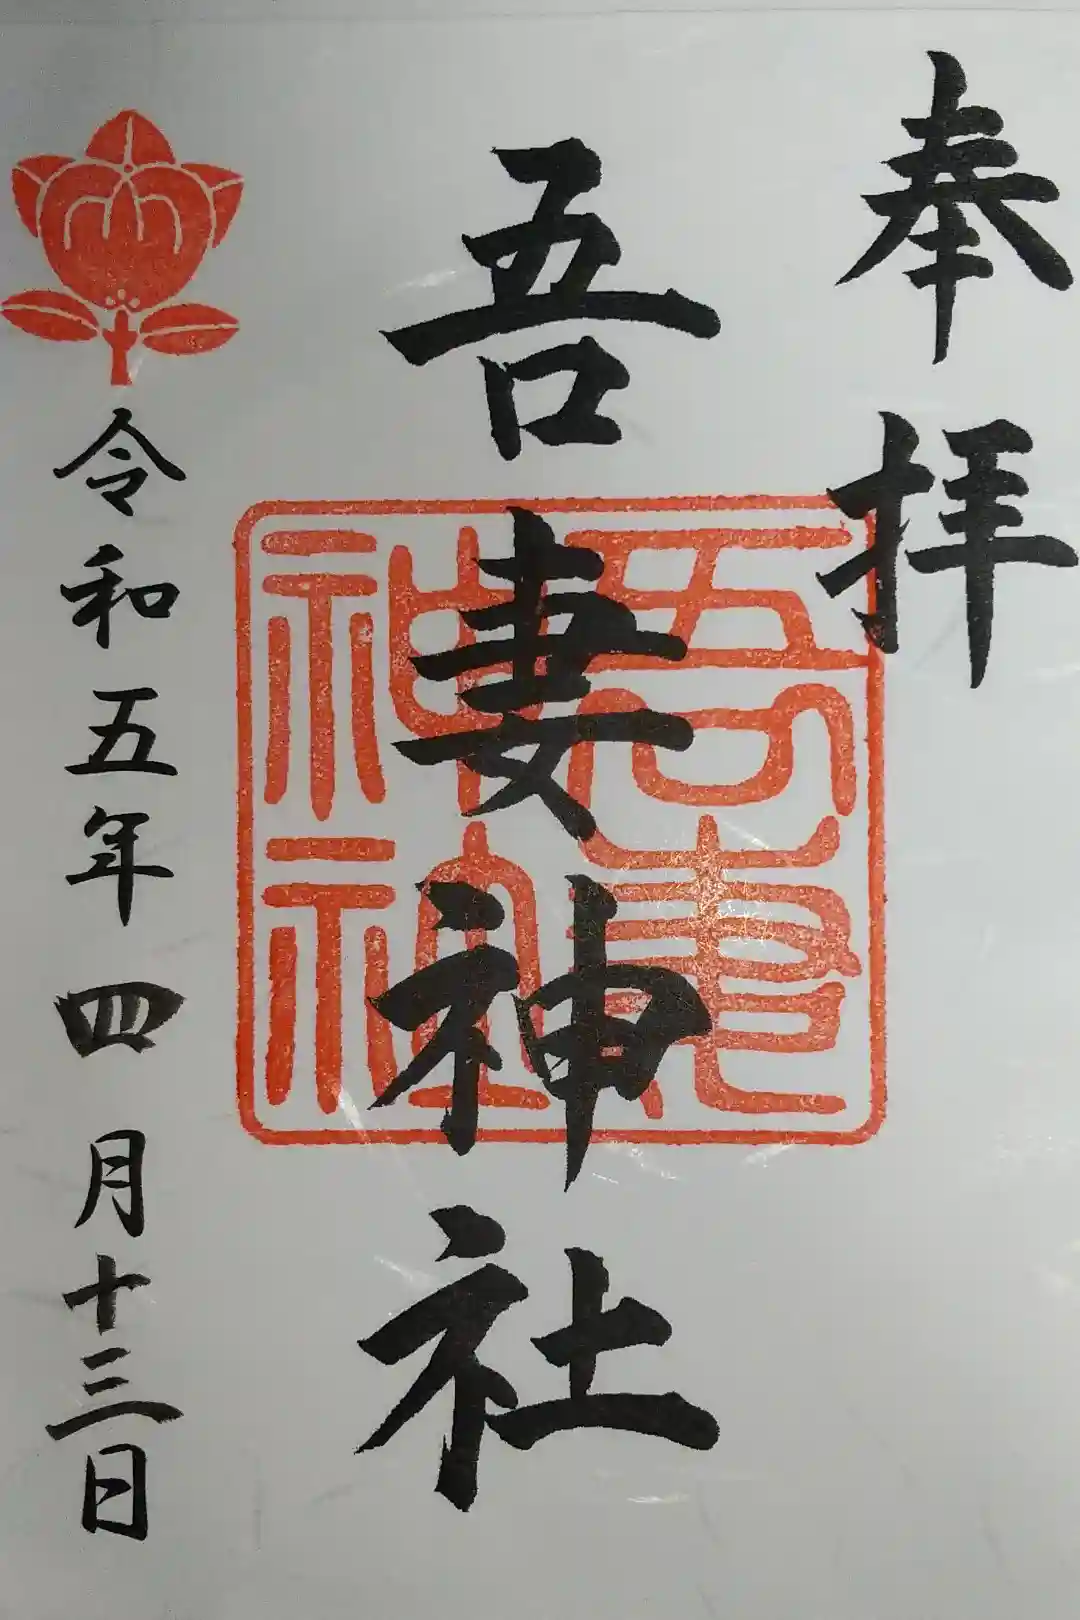 奉拝
吾妻神社
吾妻神社
令和五年四月十三日